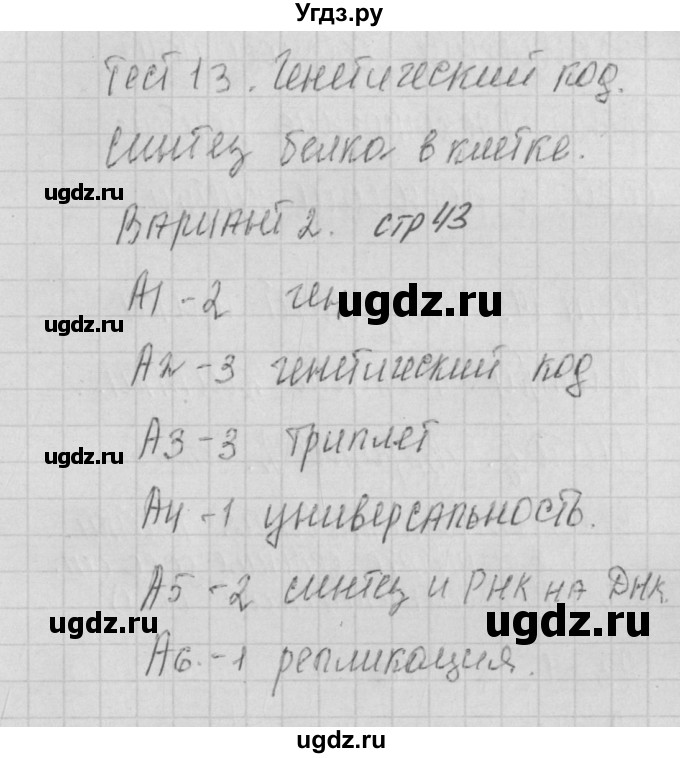 Угдз.ру
Тест 13. Генетический код.
Синтез белка в клетке.
ugdz.ru
Вариант 2. стр 43
А1 - 2 ген
ugdz.ru
ugdz.ru
А2 - 3 генетический код
А3 - 3 триплет
ugdz.ru
А4 - 1 универсальность.
А5 - 2 синтез и РНК на ДНК.
ugdz.ru
ugdz.ru
А6. - 1 репликация.
ugdz.ru